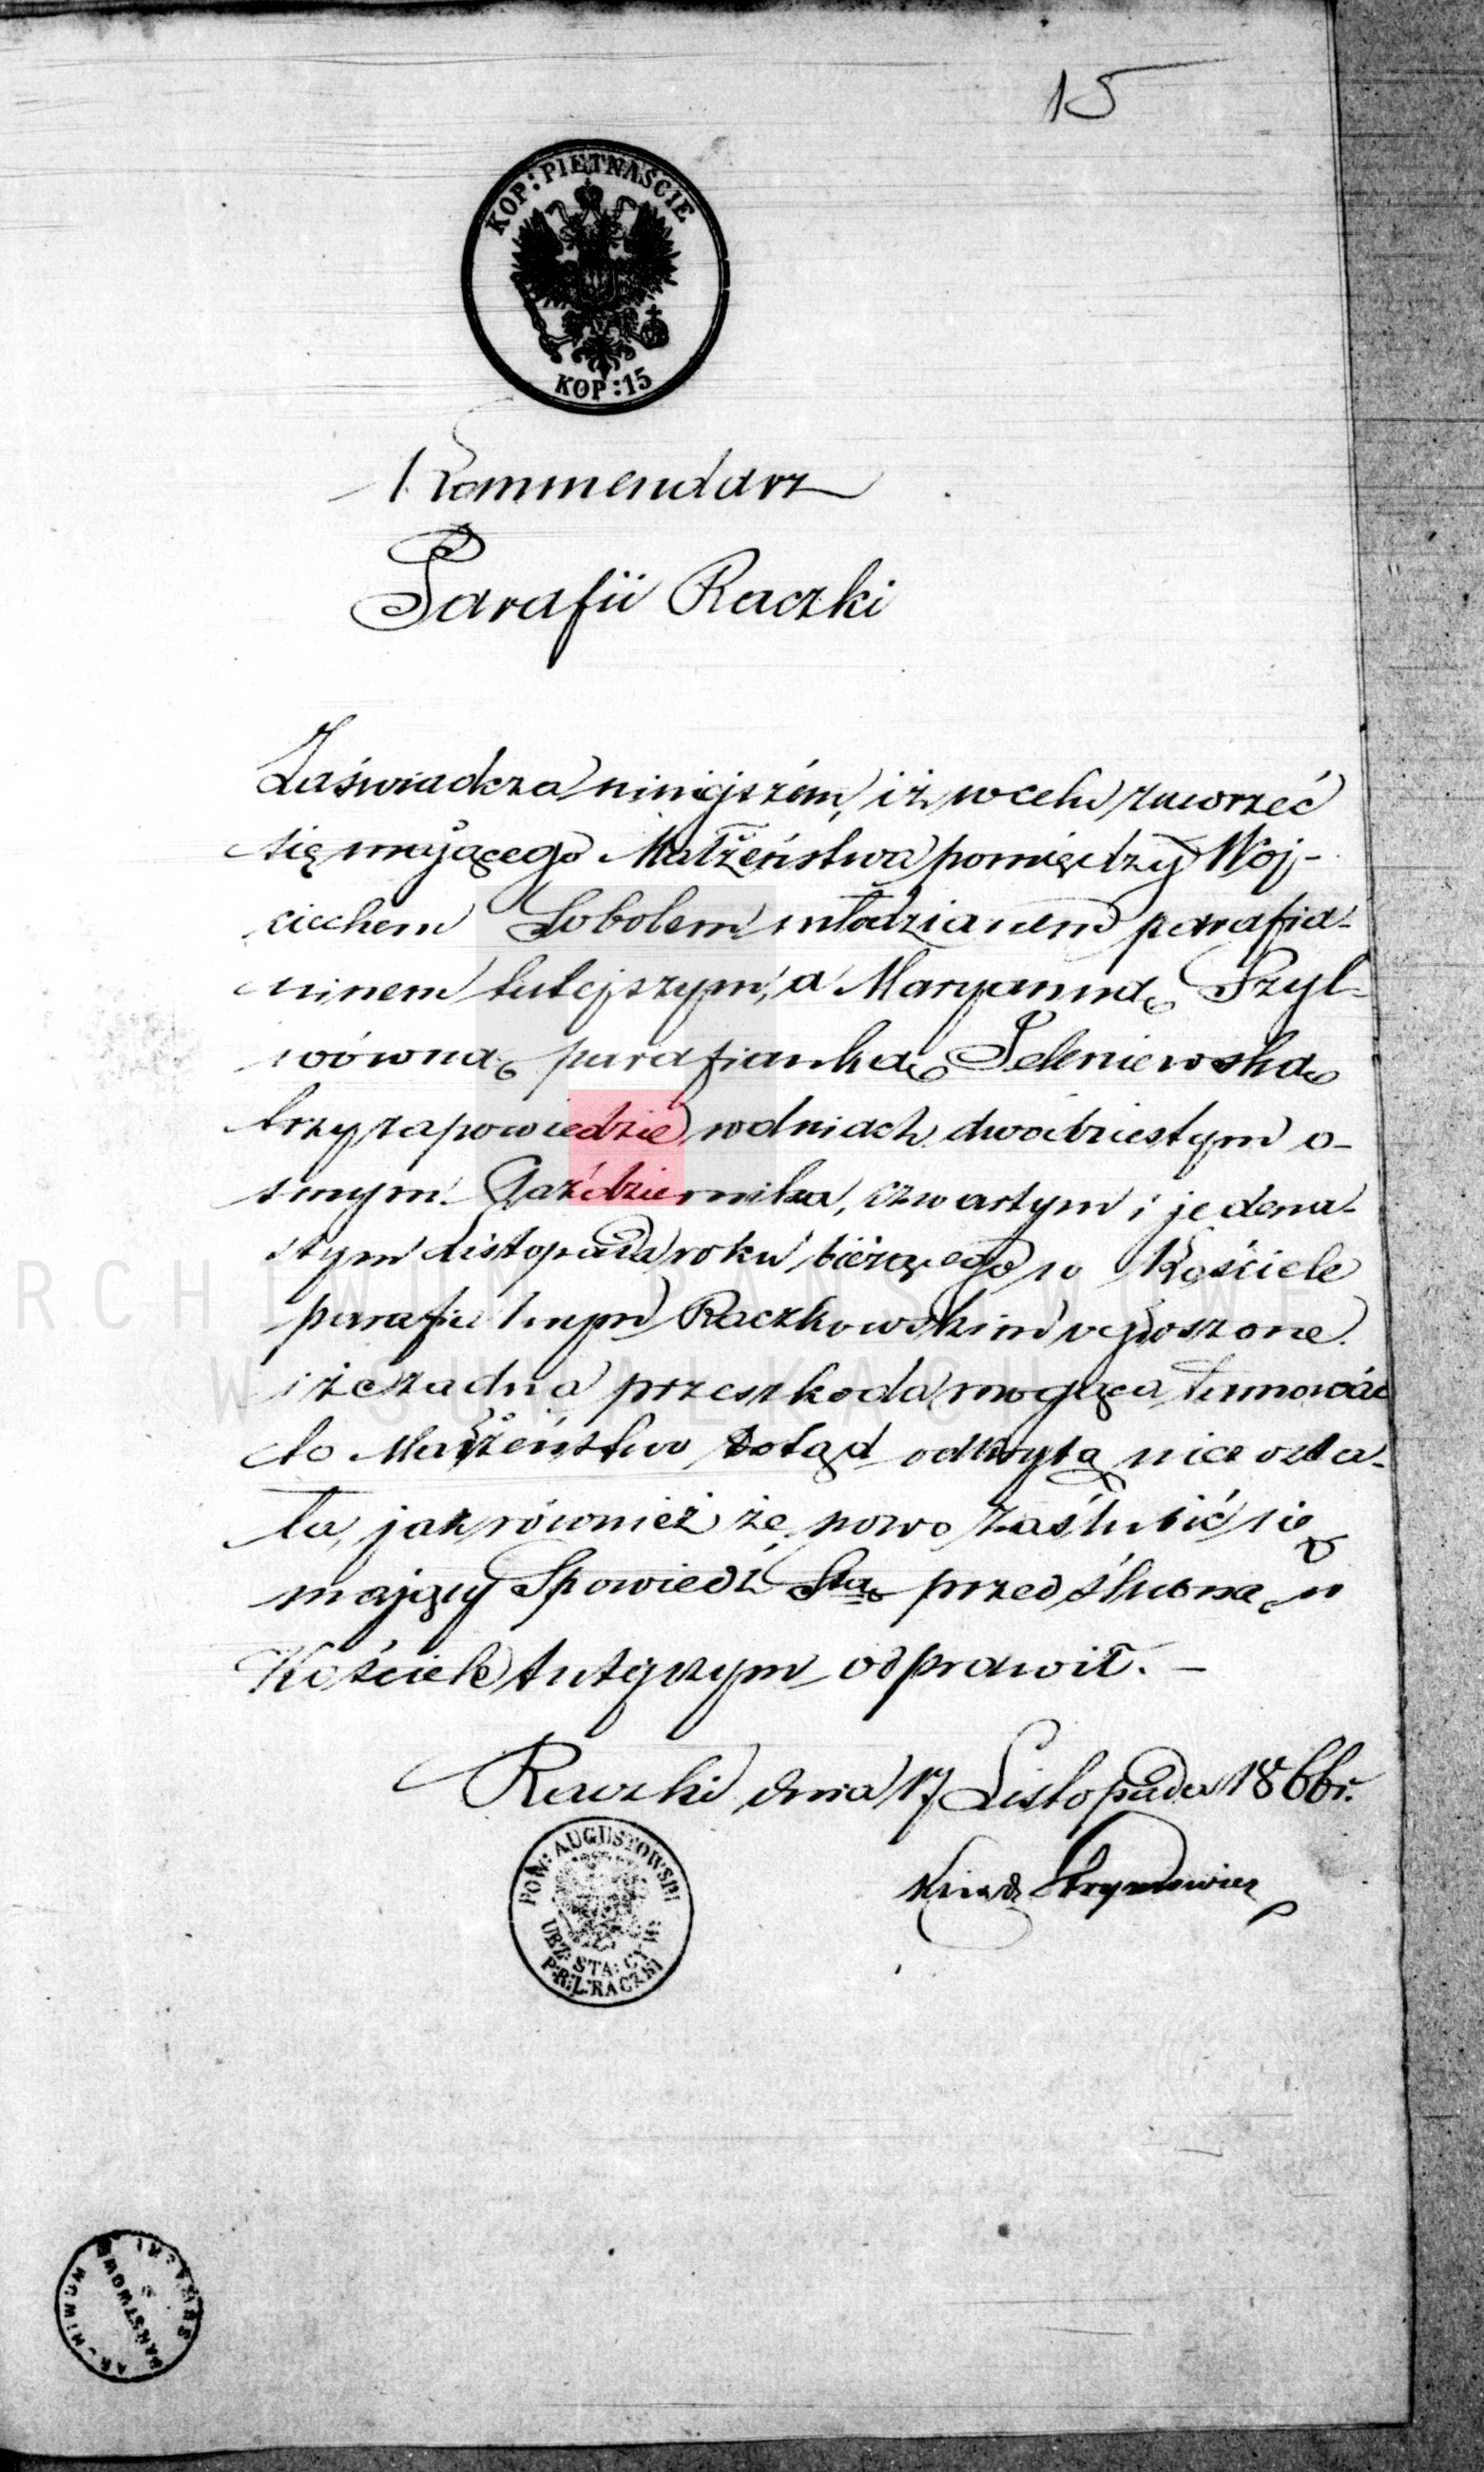 15
KOP: PIĘTNAŚCIE
KOP: 15
Kommendarz
Parafii Raczki
Zaświadcza niniejszém, iż w celu zawrzeć
się mającego Małżeństwa pomiędzy Woj-
ciechem Sobolem młodzianem parafia-
ninem tutejszym, a Maryanną Szyl-
wówną parafianką Jeleniewską
trzy zapowiedzie w dniach dwódziestym o-
smym Października, czwartym i jedena-
stym Listopada roku bieżącego w Kościele
parafialnym Raczkowskim ogłoszone
i że żadna przeszkoda mogąca tamować
to Małżeństwo dotąd odkrytą nie osta-
ła, jak również że nowo zaślubić się
mający Spowiedź Stą przedślubną w
Kościele tutejszym odprawił. —
Raczki dnia 17 Listopada 1866 r.
Ksiądz
POW: AUGUSTOWSKI
URZ: STA: CYW:
P.R.L. RACZKI
ARCHIWUM PAŃSTWOWE
W SUWAŁKACH